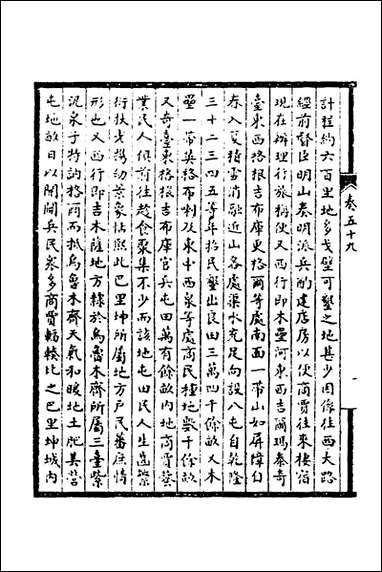 卷五十九
計程約六百里地多戈壁可墾之地甚少因係往西大路
經前督臣明山奏明派兵酌建店房以便商賈往來棲宿
現在辦理行旅稱便又西行即木壘河東西吉爾瑪泰奇
臺東西格根吉布庫更格爾等處南面一帶山如屏障自
春入夏積雪消融近山各處渠水充足向設八屯自乾隆
三十二三四五等年招民墾出良田三萬四千餘畝又木
壘一帶英格布喇及東中西泉等處商民種地數千餘畝
又奇臺東格根吉布庫官兵屯田萬有餘畝內地商賈藝
業民人俱前往趁食聚集不少而該地屯田民人生齒繁
衍扶老攜幼景象恬熙此巴里坤所屬地方戶民蕃庶情
形也又西行即吉木薩地方隸於烏魯木齊所屬三臺紫
泥泉子特訥格爾而抵烏魯木齊天氣和暖地土肥美營
屯地畝日以開闢兵民眾多商賈輻輳比之巴里坤城內